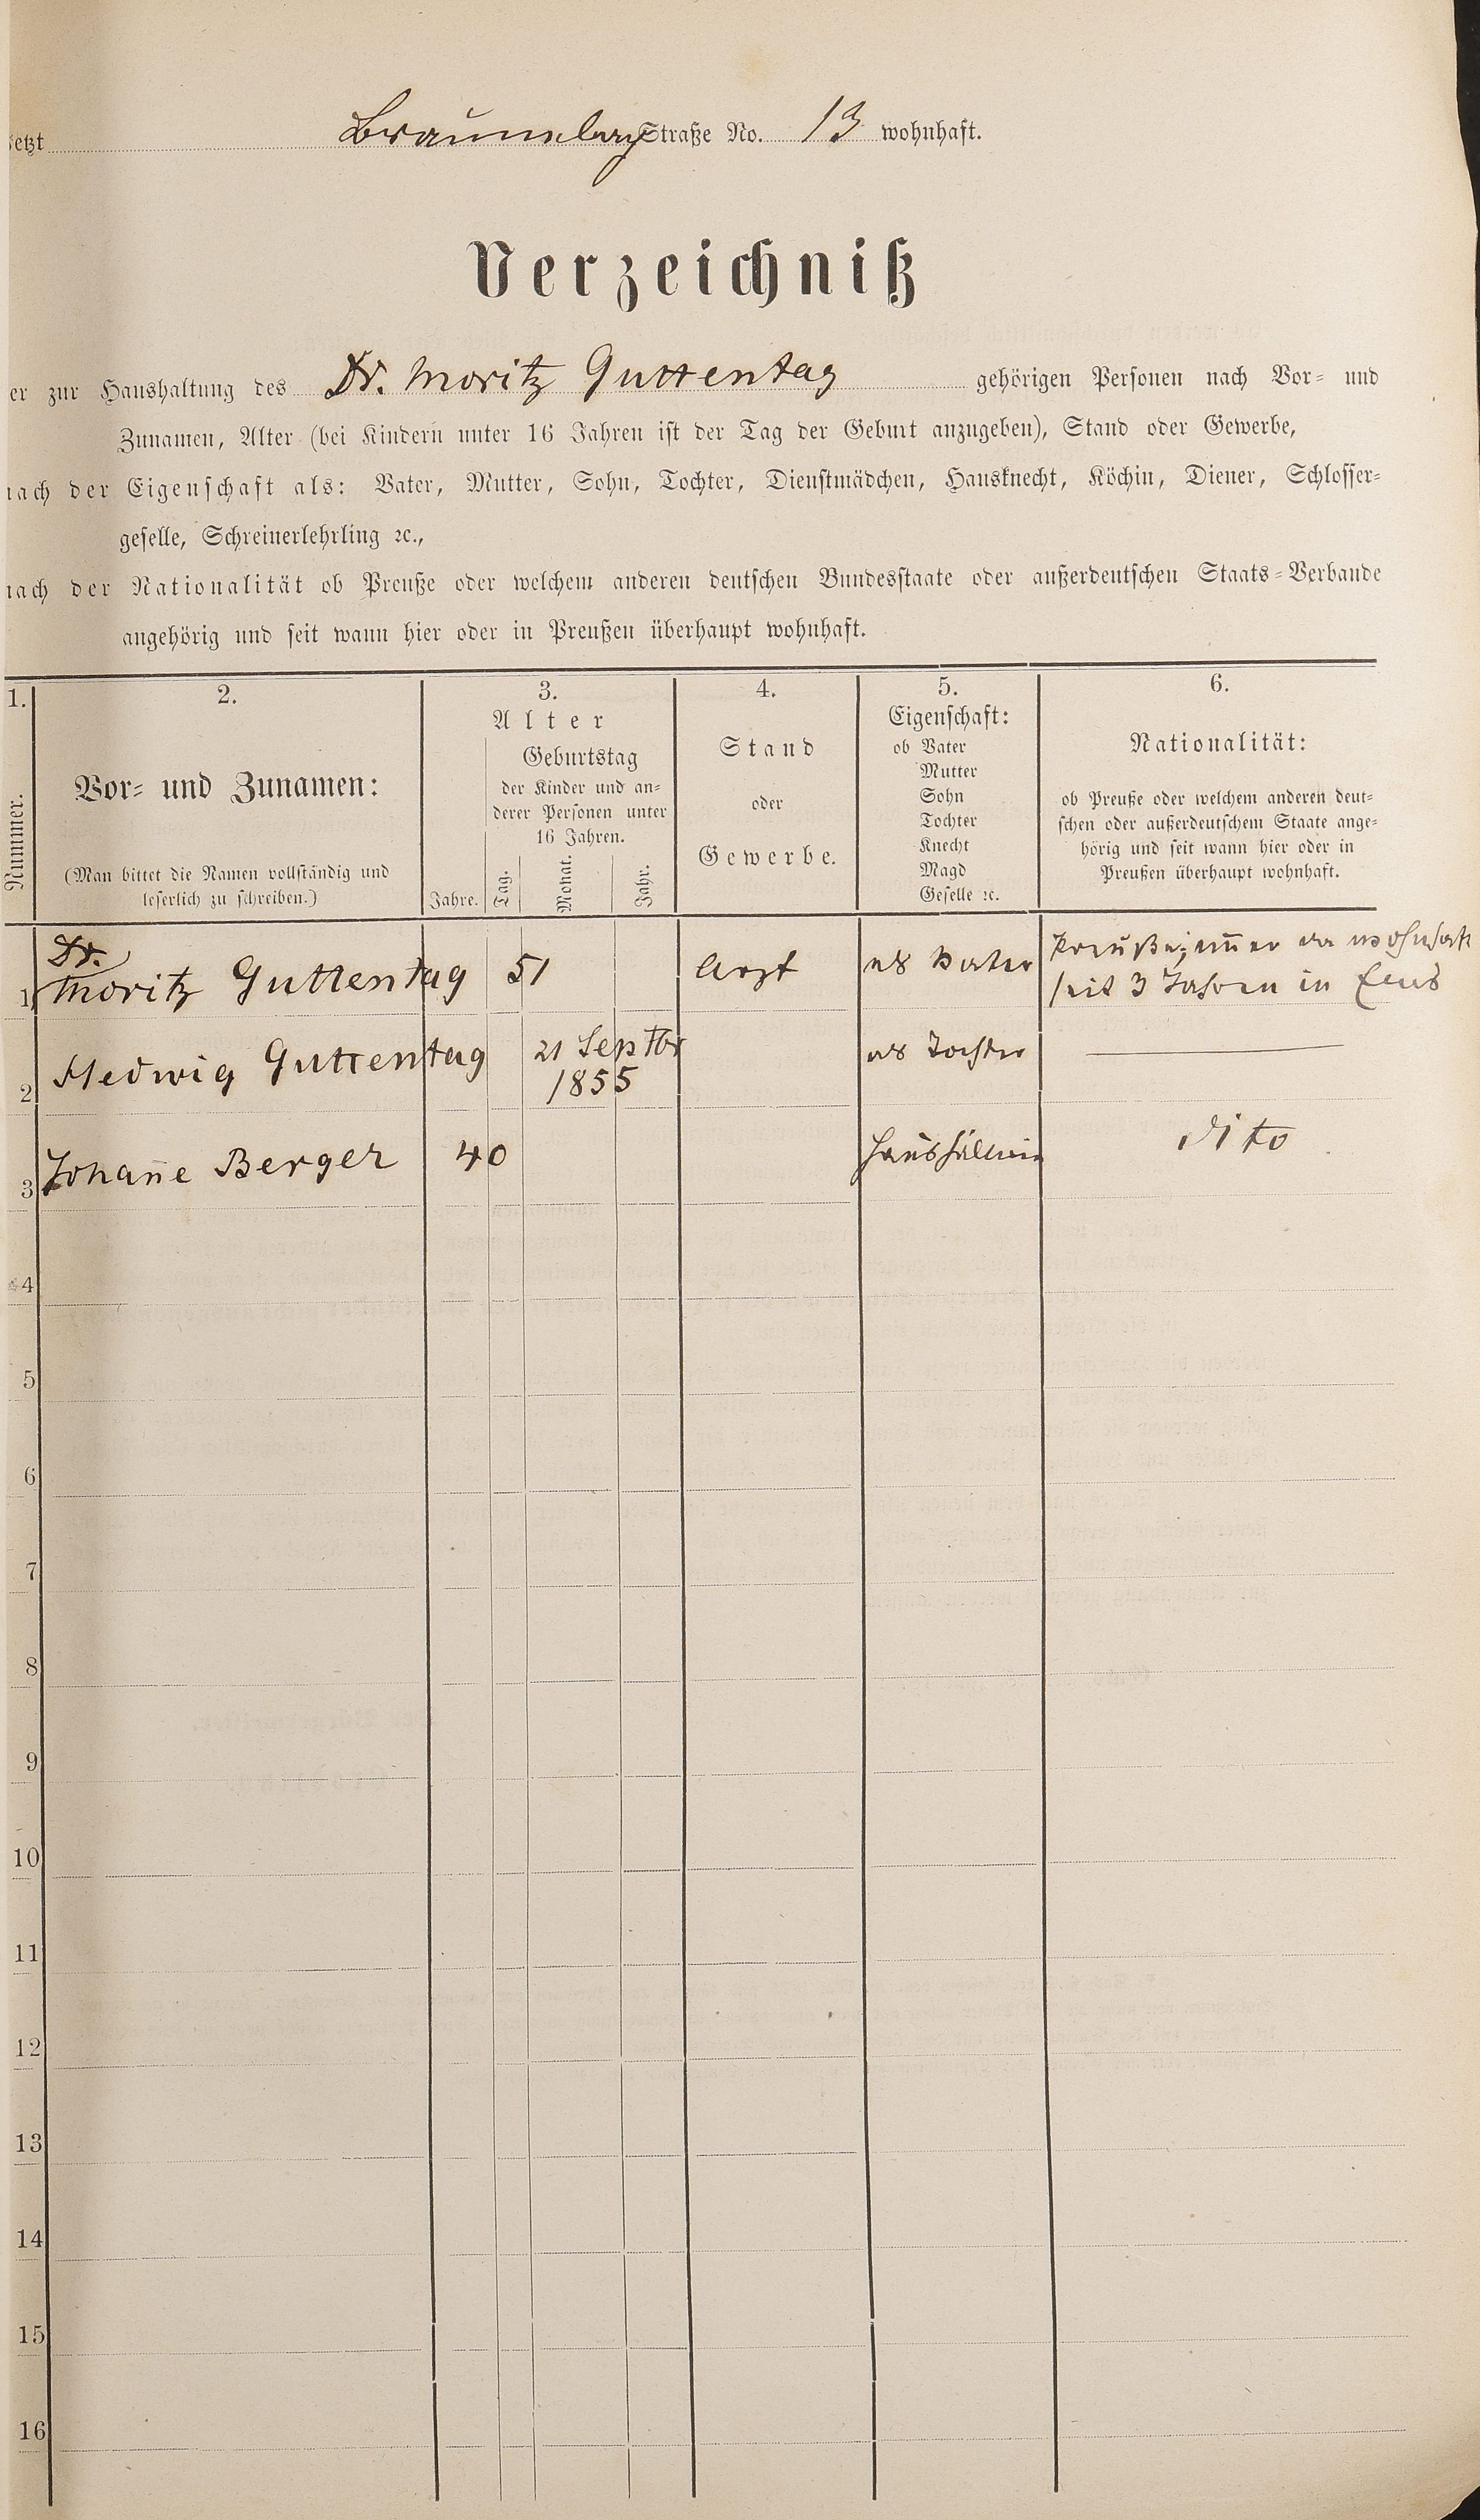 jetzt Braunsberg Straße No. 13 wohnhaft.
Verzeichniß
er zur Haushaltung des Dr. Moritz Guttentag gehörigen Personen nach Vor- und
Zunamen, Alter (bei Kindern unter 16 Jahren ist der Tag der Geburt anzugeben), Stand oder Gewerbe,
nach der Eigenschaft als: Vater, Mutter, Sohn, Tochter, Dienstmädchen, Hausknecht, Köchin, Diener, Schlosser-
geselle, Schreinerlehrling ꝛc.,
nach der Nationalität ob Preuße oder welchem anderen deutschen Bundesstaate oder außerdeutschen Staats-Verbande
angehörig und seit wann hier oder in Preußen überhaupt wohnhaft.
1.
Nummer.
2.
Vor- und Zunamen:
(Man bittet die Namen vollständig und
leserlich zu schreiben.)
3.
Alter
Jahre.
Geburtstag
der Kinder und an-
derer Personen unter
16 Jahren.
Tag. Monat. Jahr.
4.
Stand
oder
Gewerbe.
5.
Eigenschaft:
ob Vater
Mutter
Sohn
Tochter
Knecht
Magd
Geselle ꝛc.
6.
Nationalität:
ob Preuße oder welchem anderen deut-
schen oder außerdeutschem Staate ange-
hörig und seit wann hier oder in
Preußen überhaupt wohnhaft.
Dr.
1 Moritz Guttentag 51 Arzt als Vater Preuße, im̅er da wohnhaft
seit 3 Jahren in Ems
2 Hedwig Guttentag 21 Septbr 1855 als Tochter —
3 Johan̅e Berger 40 Haushälterin dito
4
5
6
7
8
9
10
11
12
13
14
15
16